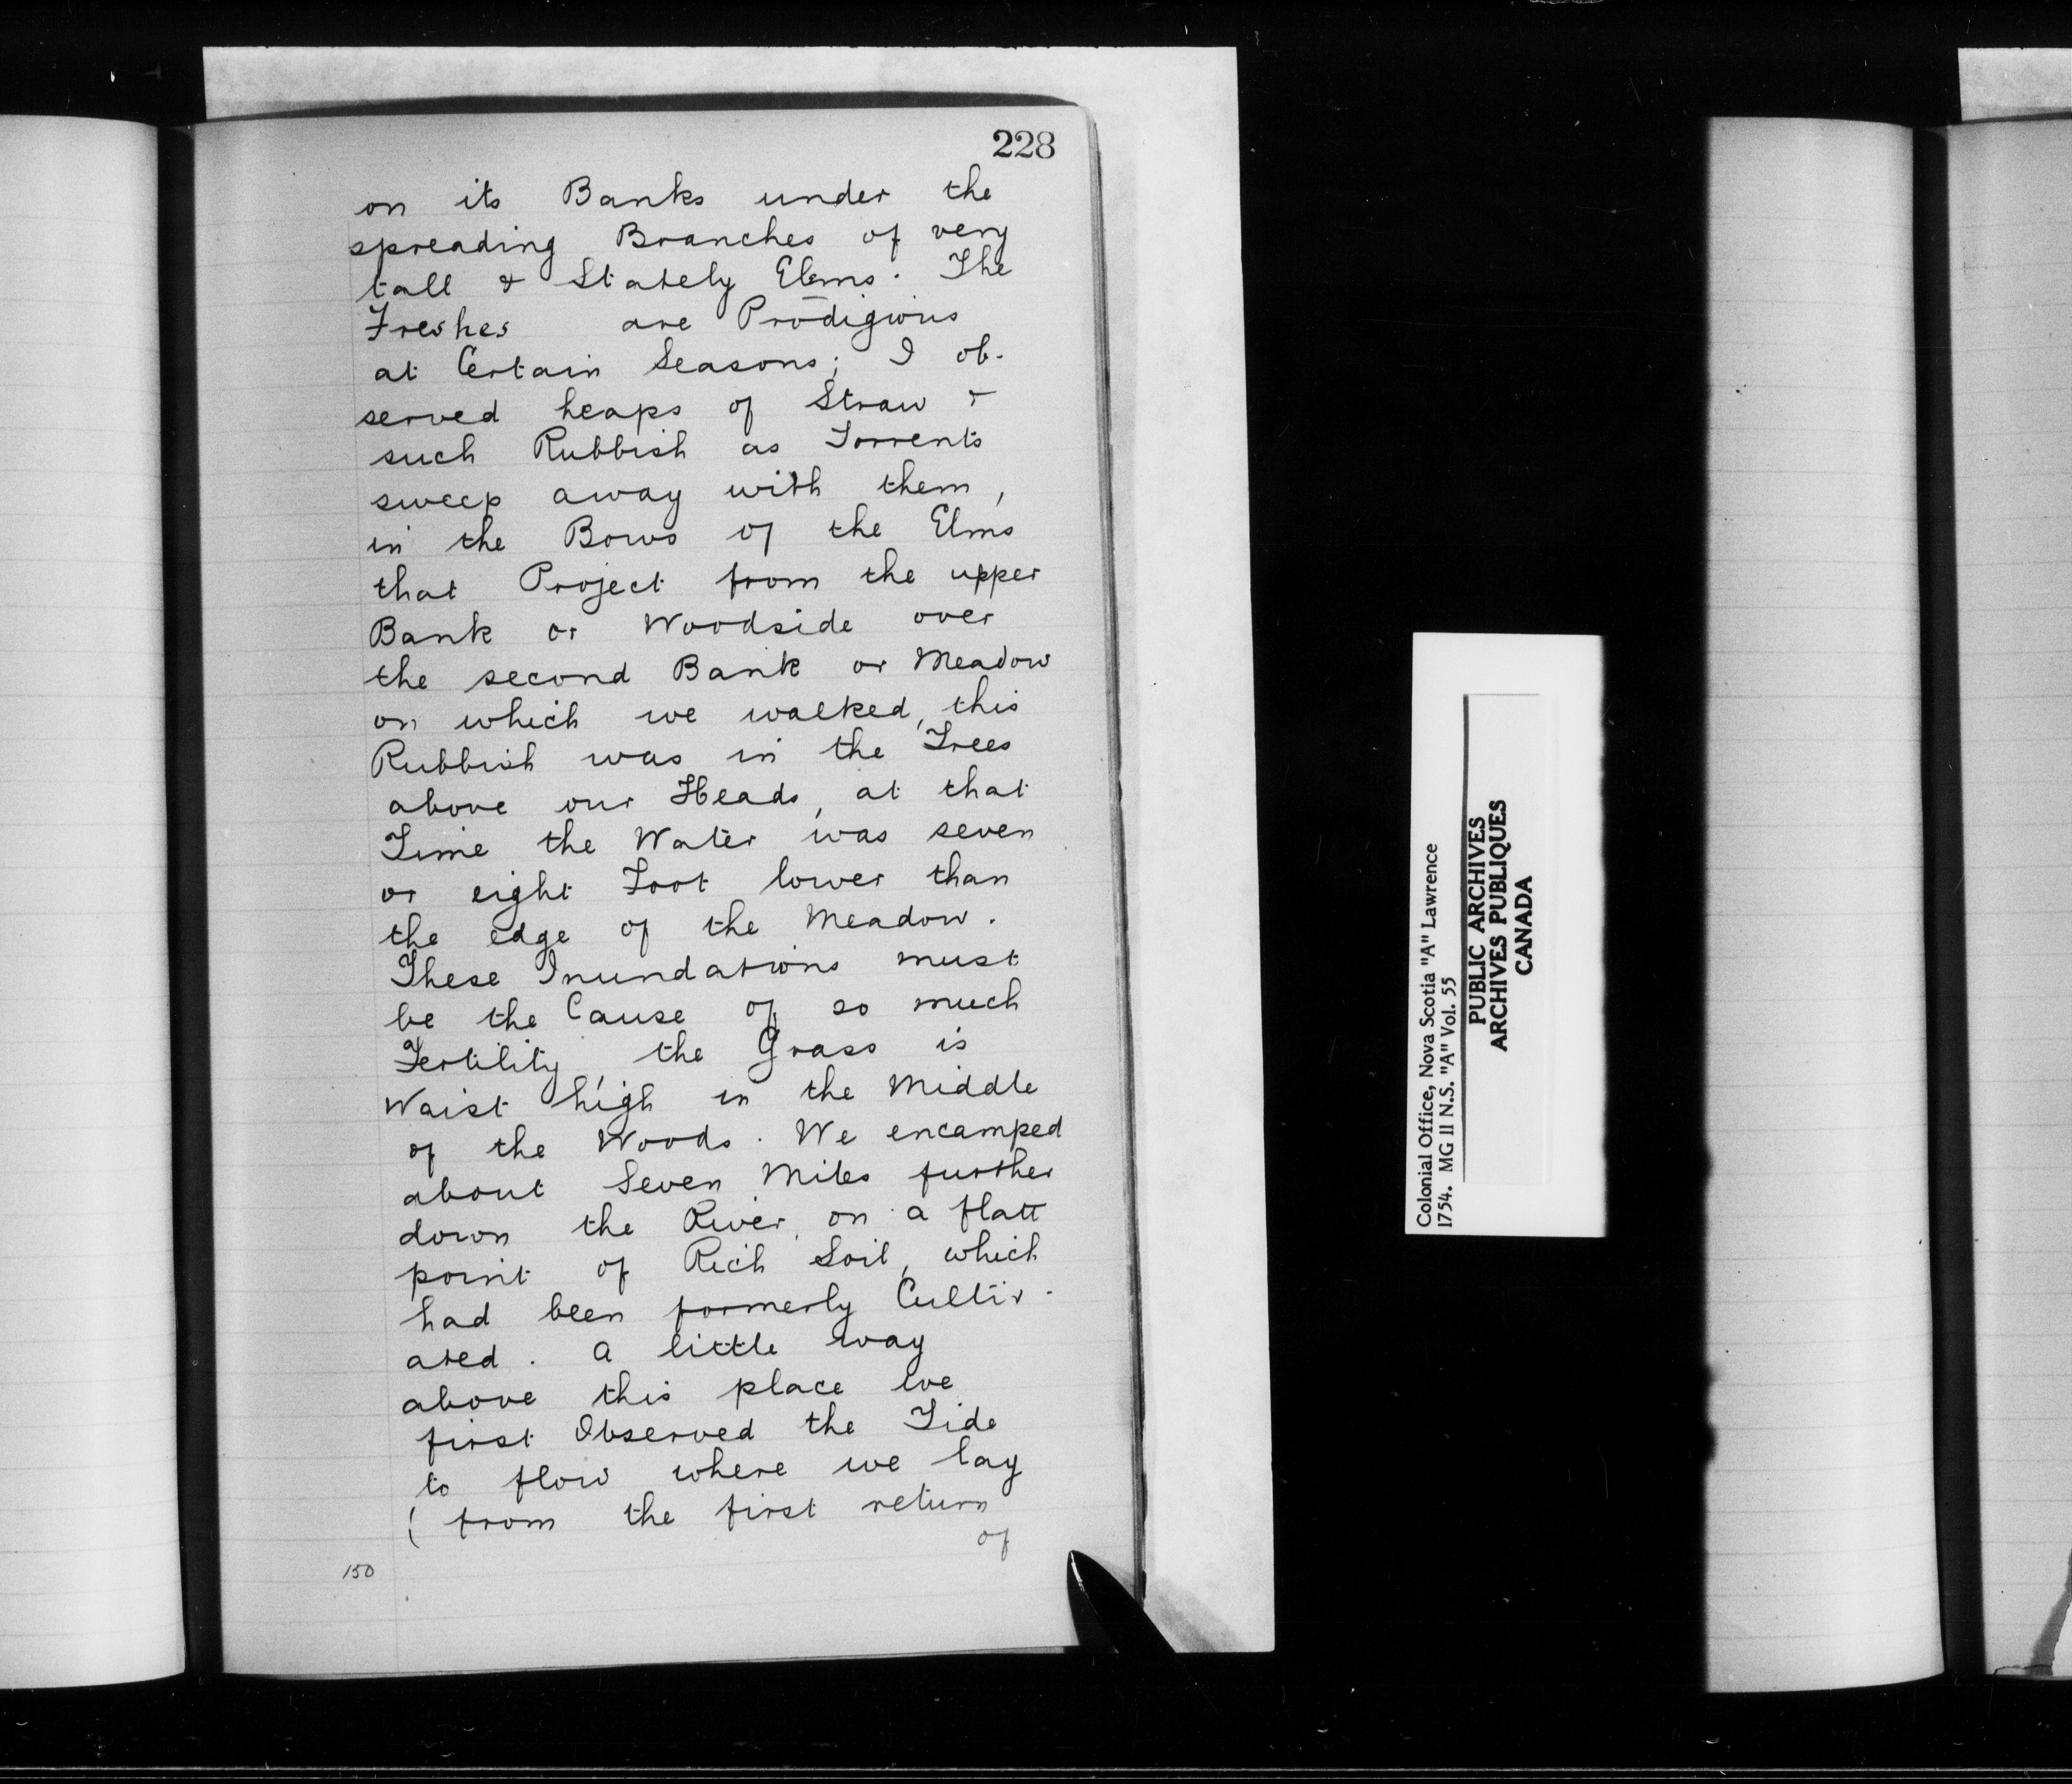 228
on its Banks under the
spreading Branches of very
tall & Stately Elms. The
Freshes are Prodigious
at Certain Seasons; I ob-
served heaps of Straw &
such Rubbish as Torrents
sweep away with them,
in the Bows of the Elms
that Project from the upper
Bank or Woodside over
the second Bank or Meadow
on which we walked, this
Rubbish was in the Trees
above our Heads, at that
Time the Water was seven
or eight Foot lower than
the edge of the Meadow.
These Inundations must
be the Cause of so much
Fertility, the Grass is
Waist high in the Middle
of the Woods. We encamped
about Seven Miles further
down the River, on a flatt
point of Rich Soil, which
had been formerly Cultiv-
ated. A little way
above this place we
first Observed the Tide
to flow where we lay
( from the first return
of
150
Colonial Office, Nova Scotia "A" Lawrence
1754. MG 11 N.S. "A" Vol. 55
PUBLIC ARCHIVES
ARCHIVES PUBLIQUES
CANADA